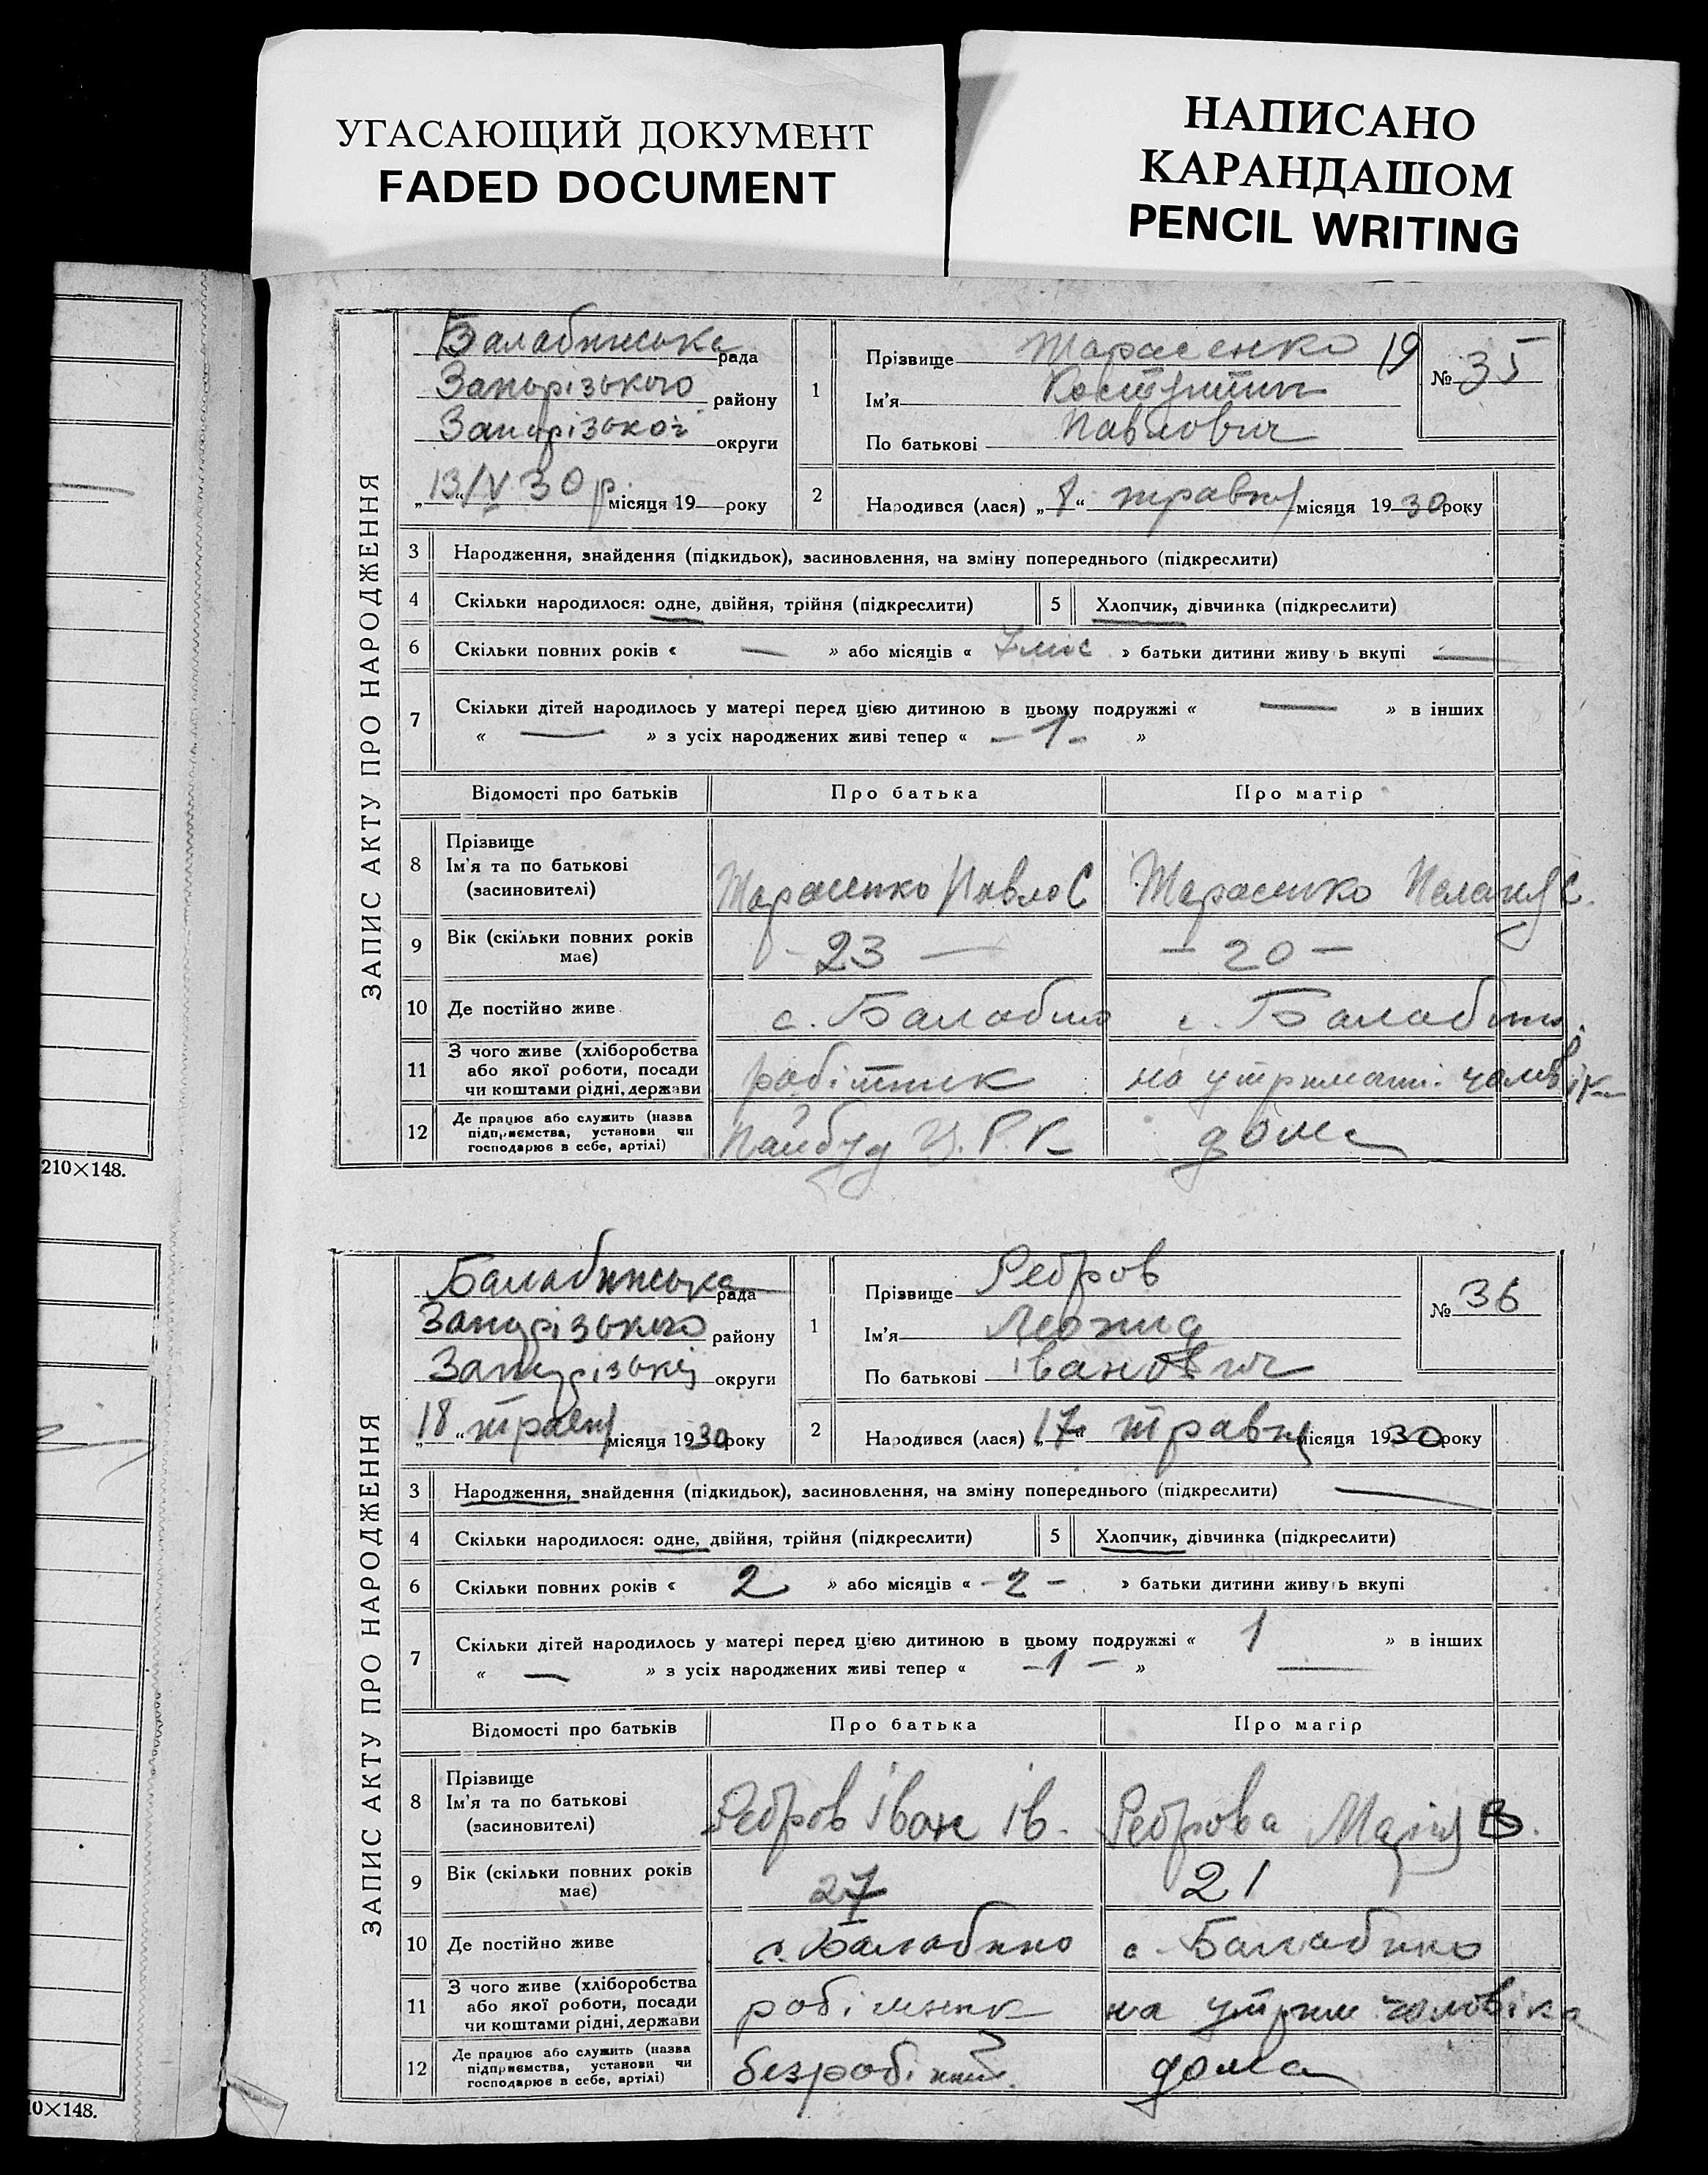 УГАСАЮЩИЙ ДОКУМЕНТ
FADED DOCUMENT
НАПИСАНО
КАРАНДАШОМ
PENCIL WRITING
210×148.
0×148.
ЗАПИС АКТУ ПРО НАРОДЖЕННЯ
Балабинська рада
Запорізького району
Запорізької округи
„13“/V 30 р. місяця 19 року
1 Прізвище Тарасенко 19
Ім'я
По батькові Павлович
№ 35
2 Народився (лася) „8“ травня місяця 1930 року
3 Народження, знайдення (підкидьок), засиновлення, на зміну попереднього (підкреслити)
4 Скільки народилося: одне, двійня, трійня (підкреслити) 5 Хлопчик, дівчинка (підкреслити)
6 Скільки повних років « — » або місяців « 7 міс » батьки дитини живуть вкупі —
7 Скільки дітей народилось у матері перед цією дитиною в цьому подружжі « — » в інших
« — » з усіх народжених живі тепер « - 1 - »
Відомості про батьків Про батька Про матір
8 Прізвище
Ім'я та по батькові
(засиновителі)
Тарасенко Павло С Тарасенко Пелагія С.
9 Вік (скільки повних років
має)
- 23 — - 20 -
10 Де постійно живе с. Балабино с. Балабино.
11 З чого живе (хліборобства
або якої роботи, посади
чи коштами рідні, держави
робітник на утриманні чоловіка
12 Де працює або служить (назва
підприємства, установи чи
господарює в себе, артілі)
Ц.Р.К. дома
ЗАПИС АКТУ ПРО НАРОДЖЕННЯ
Балабинська рада
Запорізького району
Запорізької округи
„18“ травня місяця 1930 року
1 Прізвище Ребров
Ім'я Леонид
По батькові Іванович
№ 36
2 Народився (лася) „17“ травня місяця 1930 року
3 Народження, знайдення (підкидьок), засиновлення, на зміну попереднього (підкреслити) —
4 Скільки народилося: одне, двійня, трійня (підкреслити) 5 Хлопчик, дівчинка (підкреслити)
6 Скільки повних років « 2 » або місяців « - 2 - » батьки дитини живуть вкупі
7 Скільки дітей народилось у матері перед цією дитиною в цьому подружжі « 1 » в інших
« — » з усіх народжених живі тепер « - 1 - » —
Відомості про батьків Про батька Про матір
8 Прізвище
Ім'я та по батькові
(засиновителі)
Ребров Іван Ів. Реброва Марія В.
9 Вік (скільки повних років
має)
27 21
10 Де постійно живе с. Балабино с. Балабино
11 З чого живе (хліборобства
або якої роботи, посади
чи коштами рідні, держави
робітник на утрим чоловіка
12 Де працює або служить (назва
підприємства, установи чи
господарює в себе, артілі)
безробітний. дома